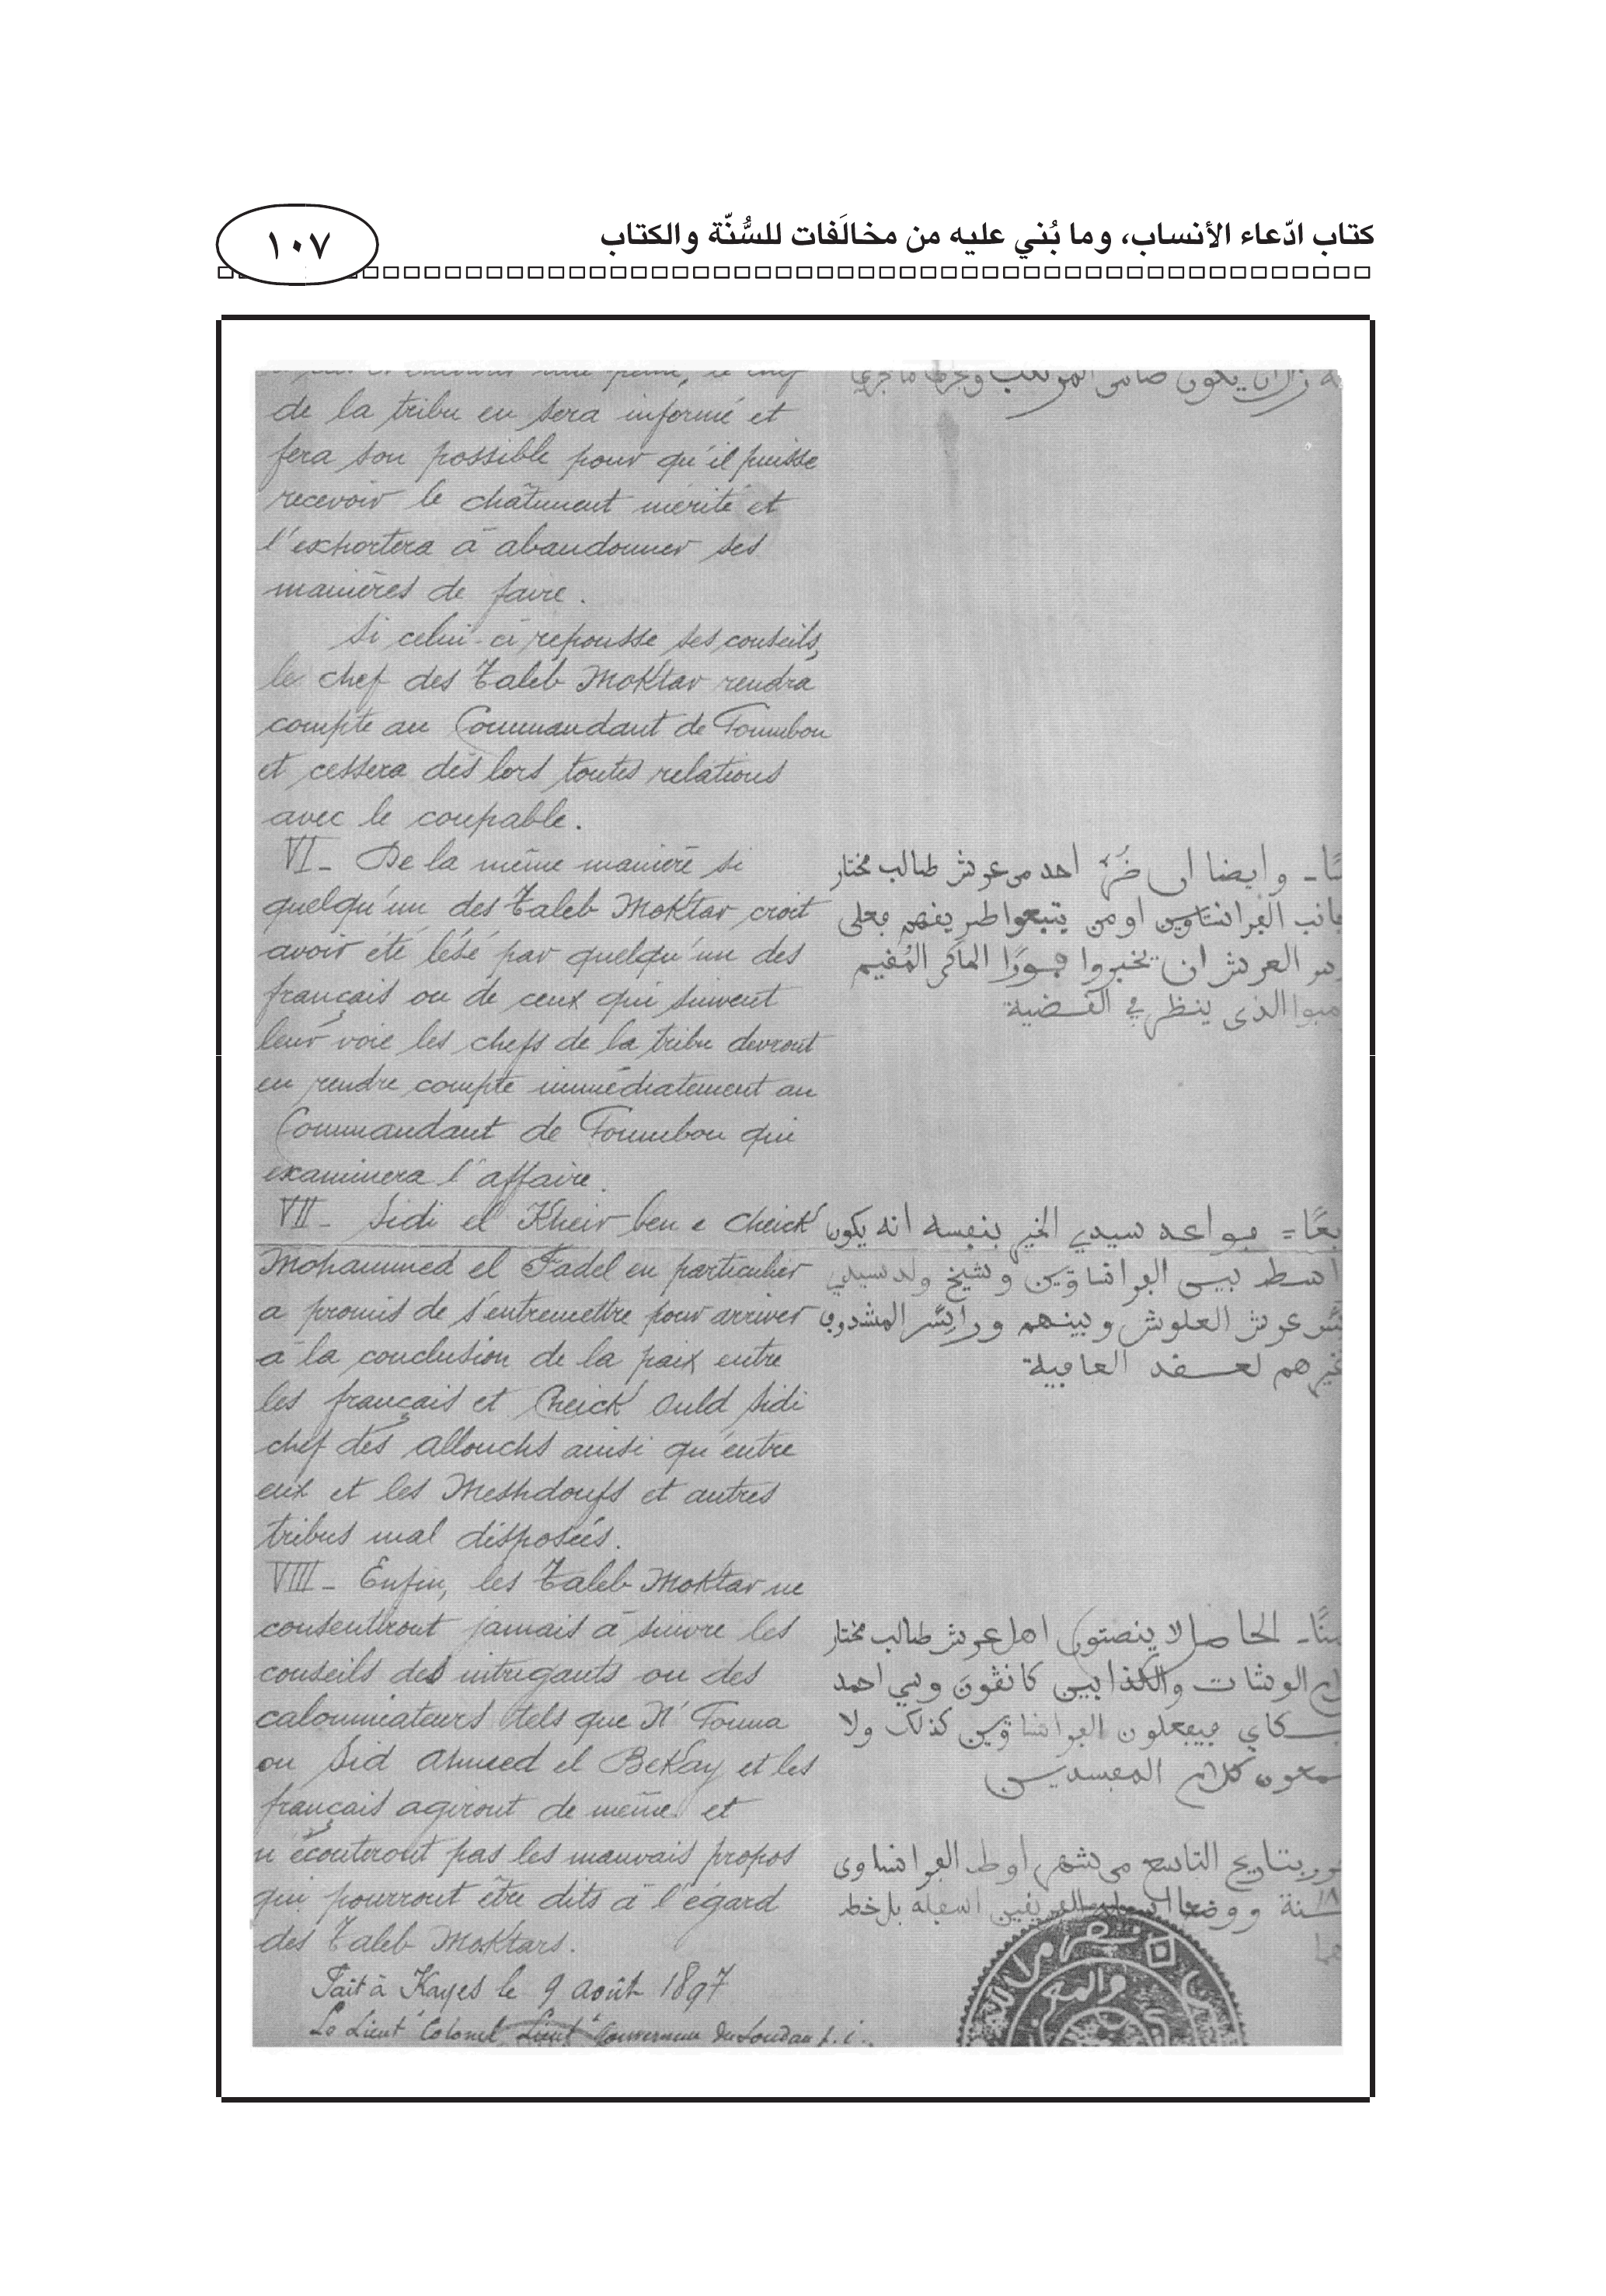 كتاب ادّعاء الأنساب، وما بُني عليه من مخالَفات للسُّنّة والكتاب
١٠٧
de la tribu en sera informé et
fera son possible pour qu'il puisse
recevoir le châtiment mérité et
l'exhortera à abandonner ses
manières de faire.
Si celui-ci repousse ses conseils,
le chef des Taleb Moktar rendra
compte au Commandant de Toumbou
et cessera dès lors toutes relations
avec le coupable.
VI_ De la même manière si
quelqu'un des Taleb Moktar croit
avoir été lésé par quelqu'un des
français ou de ceux qui suivent
leur voie les chefs de la tribu devront
en rendre compte immédiatement au
Commandant de Toumbou qui
examinera l'affaire.
VII_ Sidi el Kheir ben e Cheick
Mohammed el Fadel en particulier
a promis de s'entremettre pour arriver
à la conclusion de la paix entre
les français et Cheick Ould Sidi
chef des allouchs ainsi qu'entre
eux et les Meshdoufs et autres
tribus mal disposées.
VIII_ Enfin, les Taleb Moktar ne
consentiront jamais à suivre les
conseils des intrigants ou des
calomniateurs tels que N'Gouna
ou Sid Ahmed el Bekay et les
français agiront de même et
n'écouteront pas les mauvais propos
qui pourront être dits à l'égard
des Taleb Moktars.
Fait à Kayes le 9 août 1897
Le Lieut Colonel Lieut Gouverneur du Soudan p. i.
وايضا ان ضرّ احد من عرش طالب مختار
الفرانساوين او من يتبعوا طريقهم فعلى
العرش ان يخبروا فورًا الحاكم المُقيم
الذى ينظر في القضية
فواعد سيدي الخير بنفسه انه يكون
بين الفرانساوين وشيخ ولد سيدي
عرش العلوش وبينهم ورايس المشدوف
لعقد العافية
الحاصل لا ينصتون اهل عرش طالب مختار
الوشات والكذابين كانڨون وسي احمد
فيفعلون الفرانساوين كذلك ولا
كلام المفسدين
بتاريخ التاسع من شهر اوط الفرانساوى
سنة ووضعا الفريقين اسفله بل خط